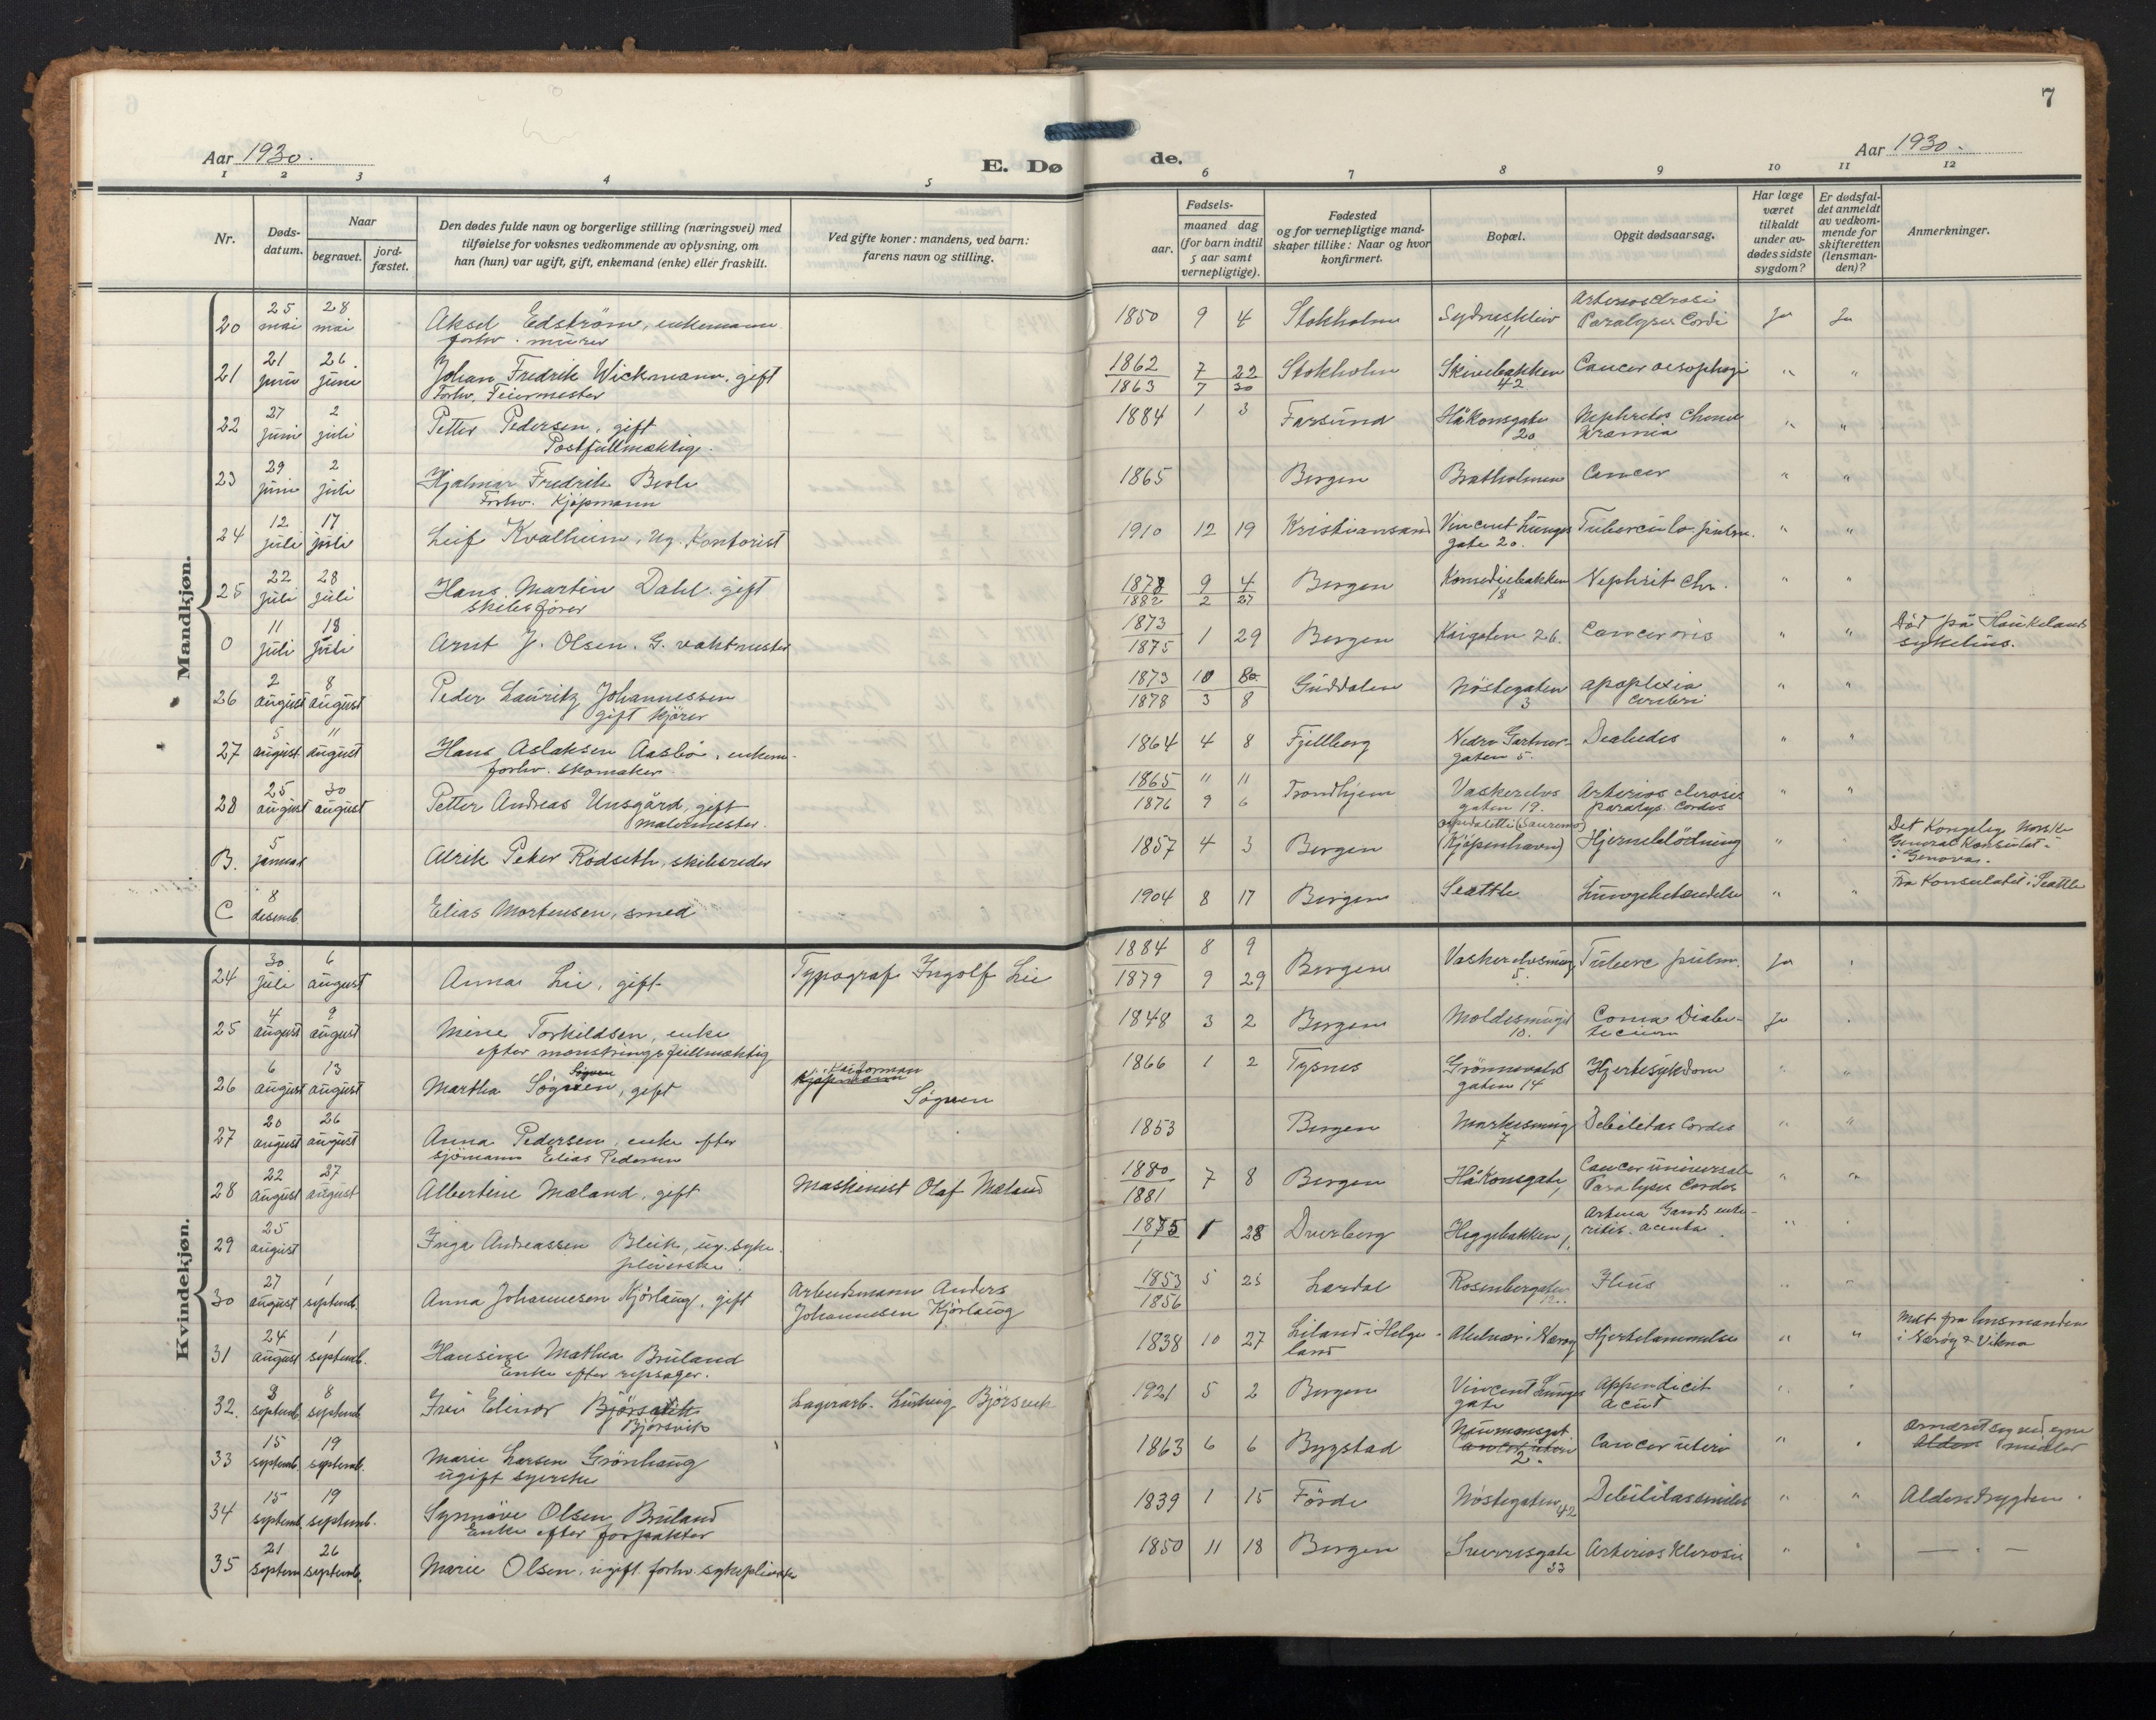 7
Aar 1930.
E. Døde.
Aar 1930.
1 2 3 4 5 6 7 8 9 10 11 12
Nr.
Døds-datum.
Naar
begravet.
jord-fæstet.
Den dødes fulde navn og borgerlige stilling (næringsvei) med
tilføielse for voksnes vedkommende av oplysning, om
han (hun) var ugift, gift, enkemand (enke) eller fraskilt.
Ved gifte koner: mandens, ved barn:
farens navn og stilling.
Fødsels-
aar.
maaned dag
(for barn indtil
5 aar samt
vernepligtige).
Fødested
og for vernepligtige mand-
skaper tillike: Naar og hvor
konfirmert.
Bopæl.
Opgit dødsaarsag.
Har læge
været
tilkaldt
under av-
dødes sidste
sygdom?
Er dødsfal-
det anmeldt
av vedkom-
mende for
skifteretten
(lensman-
den)?
Anmerkninger.
Mandkjøn.
20 25 mai 28 mai Aksel Edström, enkemann forhv. murer 1850 9 4 Stokholm Sydneskleiv 11 Paralysis Cordi Ja Ja
21 21 juni 26 juni Johan Fredrik Wickmann, gift Forhv. Feiermester 1862 7 22 1863 7 30 Stokholm Skivebakken 42 Cancer oesophagi " "
22 27 juni 2 juli Petter Pedersen, gift Postfullmæktig. 1884 1 3 Farsund Håkonsgate 20 " "
23 29 juni 2 juli Hjalmar Fredrik Forhv. Kjøpmann 1865 Bergen Bratholmen Cancer " "
24 12 juli 17 juli Leif Kvalheim, ug. Kontorist 1910 12 19 Kristiansand Vincent Lunges gate 20. Tuberculo. pulm. " "
25 22 juli 28 juli Hans Martin Dahl. gift skibsfører 1878 9 4 1882 2 27 Bergen Komediebakken 18 Nephrit chr. " "
0 11 juli 18 juli Arnt J. Olsen. G. vaktmester 1873 1875 1 29 Bergen Kaigaten 26. Cancer oris " " Död på Haukelands sykehus.
26 2 august 8 august Peder Lauritz Johannessen gift kjörer 1873 10 1878 3 8 Guddalen Nöstegaten 3 apoplexia cerebri " "
27 5 august 11 august Hans Aslaksen Aasbö, enkem. forhv. skomaker 1864 4 8 Fjellberg Nedre Gartnergaten 5. " "
28 25 august 30 august Petter Andreas Unsgård, gift malermester. 1865 " 11 1876 9 6 Trondhjem Vaskerelvsgaten 19. Arterios clerosis paralys. Cordes " "
B. 5 januar Alrik Peter Rödseth, skibsreder 1857 4 3 Bergen (Kjöpenhavn) Hjerneblödning " " Det Kongelig Norske General Konsulat i Genova.
C 8 desemb. Elias Mortensen, smed 1904 8 17 Bergen Seattle Lungebetændelse " " Fra Konsulatet i Seattle
Kvindekjøn.
24 30 juli 6 august Anna Lie, gift Typograf Ingolf Lie 1884 8 9 1879 9 29 Bergen Vaskerelvsmug. 5. Tuberc pulm. Ja
25 4 august 9 august Mine Torkildsen, enke efter mönstringsfullmæktig 1848 3 2 Bergen Moldesmuget 10. Coma Diabeticum Ja
26 6 august 13 august Martha Sögnen, gift Kaiforman Sögnen 1866 1 2 Tysnes Grönnevoldsgaten 14 Hjertesykdom " "
27 20 august 26 august Anna Pedersen, enke efter sjömann Elias Pedersen 1853 Bergen Markesmug 7 Debilitas Cordis " "
28 22 august 27 august Albertine Mæland, gift Maskinist Olaf Mæland 1880 1881 7 8 Bergen Håkonsgate, 1 Cancer universal Paralysis Cordis " "
29 25 august Inga Andreassen Bleik, ug. sykepleierske. 1875 1 28 Dverberg Heggebakken 1.
30 27 august 1 septemb. Anna Johannesen Kjörlaug, gift Arbeidsmann Anders Johannesen Kjörlaug 1853 5 25 1856 Lærdal Rosenberggaten 12. Ileus " "
31 24 august 1 septemb. Hansine Mathea Bruland Enke efter repslager. 1838 10 27 Leland i Helgeland i Nærøy Hjertelammelse " " Melt fra lensmanden i Nærøy & Vikna
32. 3 septemb. 8 septemb. Frei Elinor Björsvik Lagerarb. Ludvig Björsvik 1921 5 2 Bergen Vincent Lunges gate Appendicit acut
33 15 septemb. 19 septemb. Marie Larsen Grönhaug ugift syerske 1863 6 6 Bygstad Neumannsgt. 2. Cancer uteri "
34 15 septemb. 19 septemb. Synnöve Olsen Bruland Enke efter forpakter 1839 1 15 Förde Nöstegaten 42 Debilitas senilis " " Alderstrygden.
35 21 septem 26 septemb. Marie Olsen, ugift. forhv. sykepleierske 1850 11 18 Bergen Sverresgate 33 Arterios Klerosis " " — " —